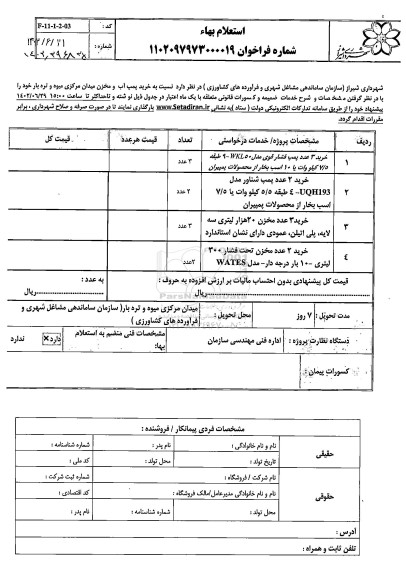 استعلام بهاء
شماره فراخوان ۱۱۰۲۰۹۷۹۷۳۰۰۰۰۱۹
کد : F-11-1-2-03
شماره :
شهرداری شیراز (سازمان ساماندهی مشاغل شهری و فرآورده های کشاورزی ) در نظر دارد نسبت به خرید پمپ آب و مخزن میدان مرکزی میوه و تره بار خود را
با در نظر گرفتن مشخصات و شرح خدمات ضمیمه و کسورات قانونی متعلقه با یک ماه اعتبار در جدول ذیل نوشته و تاحداکثر تا ساعت ۱۵:۰۰ ۱۴۰۲/۰۶/۲۹
پیشنهاد خود را از طریق سامانه تدارکات الکترونیکی دولت ( ستاد )به نشانی www.Setadiran.ir بارگذاری نمایند تا در صورت صرفه و صلاح شهرداری ، برابر
مقررات اقدام گردد.
ردیف مشخصات پروژه/ خدمات درخواستی تعداد قیمت هرعدد قیمت کل
۱ خرید ۳ عدد پمپ فشار قوی مدل WKL50-9 طبقه ۳ عدد
۷/۵ کیلو وات یا ۱۰ اسب بخار از محصولات پمپیران
۲ خرید ۲ عدد پمپ شناور مدل ۲ عدد
UQH193- ٤ طبقه ۵/۵ کیلو وات یا ۷/۵
اسب بخار از محصولات پمپیران
۳ خرید۳ عدد مخزن ۲۰هزار لیتری سه ۳ عدد
لایه، پلی اتیلن، عمودی دارای نشان استاندارد
٤ خرید ۲ عدد مخزن تحت فشار ۳۰۰ ۲عدد
لیتری -۱۰ بار درجه دار- مدل WATES
قیمت کل پیشنهادی بدون احتساب مالیات بر ارزش افزوده به حروف : به عدد :
ریال ریال
مدت تحویل : ۷ روز محل تحویل : میدان مرکزی میوه و تره بار( سازمان ساماندهی مشاغل شهری و
فرآورده های کشاورزی )
دستگاه نظارت پروژه : اداره فنی مهندسی سازمان مشخصات فنی منضم به استعلام دارد ندارد
بها:
کسورات پیمان :
مشخصات فردی پیمانکار / فروشنده :
حقیقی نام و نام خانوادگی : نام پدر : شماره شناسنامه :
تاریخ تولد : محل تولد : کد ملی :
حقوقی نام شرکت / فروشگاه : شماره ثبت شرکت :
نام و نام خانوادگی مدیرعامل/مالک فروشگاه : کد اقتصادی :
محل تولد : شماره شناسنامه : نام پدر :
آدرس :
تلفن ثابت و همراه :